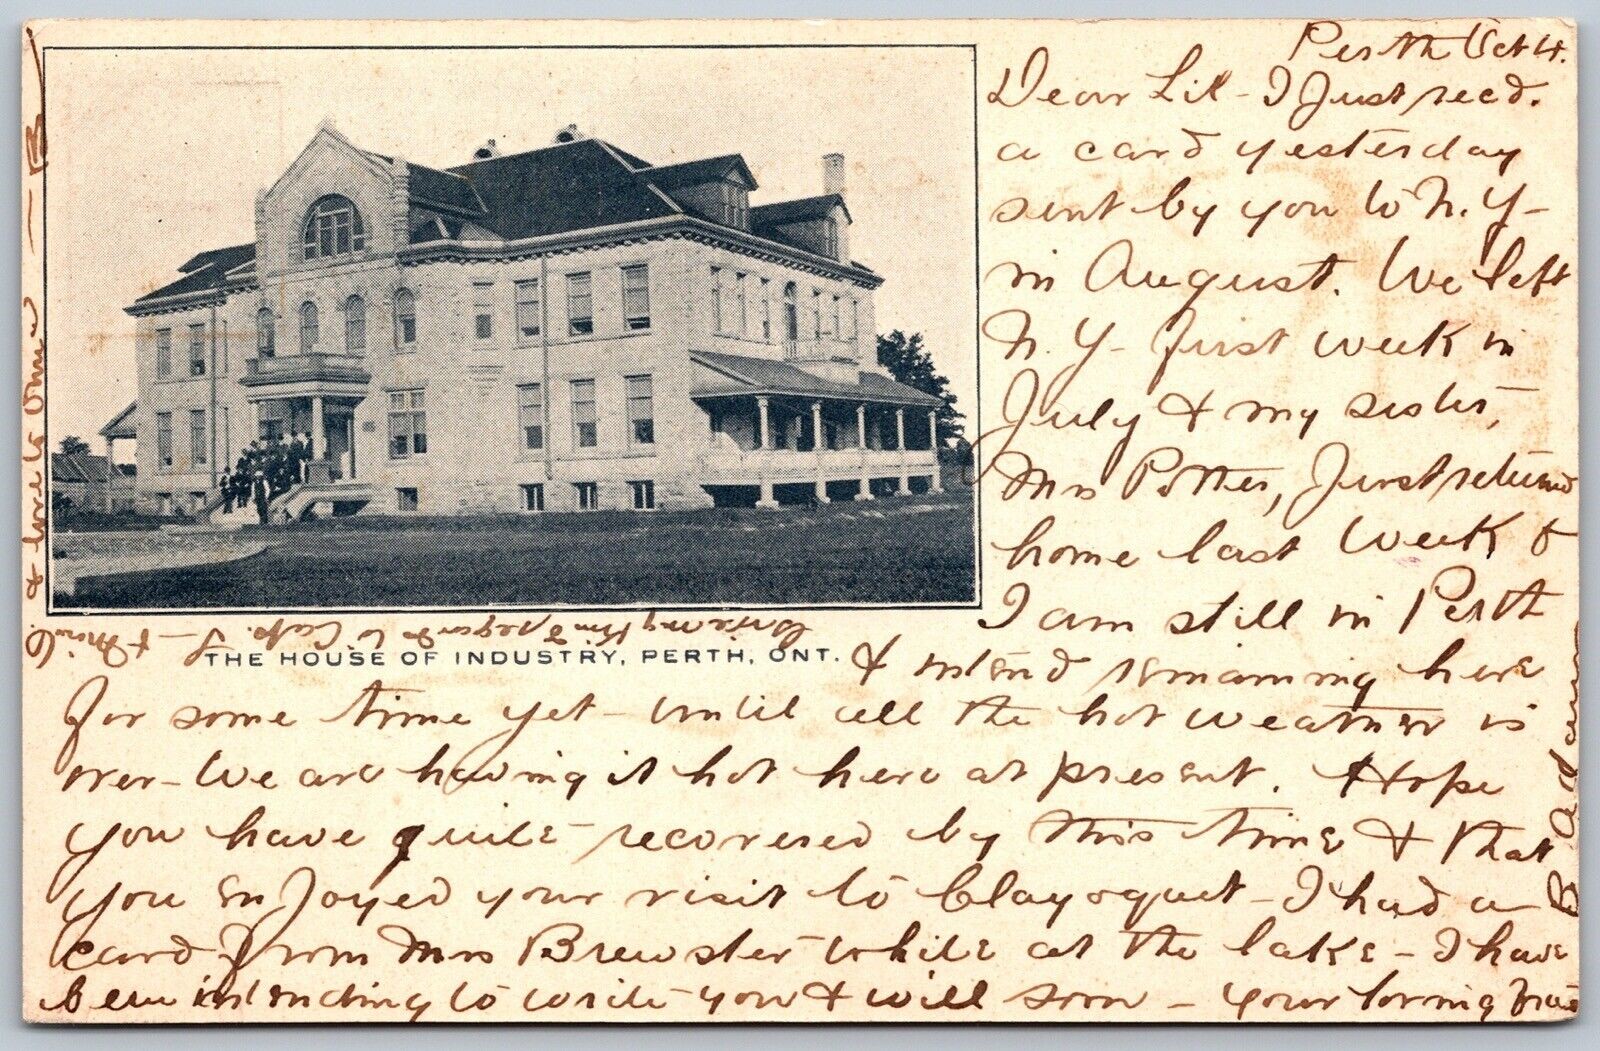 Perth Oct 4.
Dear Lil - I Just recd.
a card yesterday
sent by you to N. Y -
in August. We left
N. Y - first week in
July & my sister,
Mrs Potter, Just returned
home last week &
I am still in Perth
& intend remaining here
for some time yet - until all the hot weather is
over - We are having it hot here at present. Hope
you have quite recovered by this time & that
you enjoyed your visit to Clayoquot - I had a
card from Mrs Brewster while at the lake - I have
been intending to write you & will soon - Your loving
B Adam
Give my kind regards to Capt. J - & Mrs
& love to - B
THE HOUSE OF INDUSTRY, PERTH, ONT.